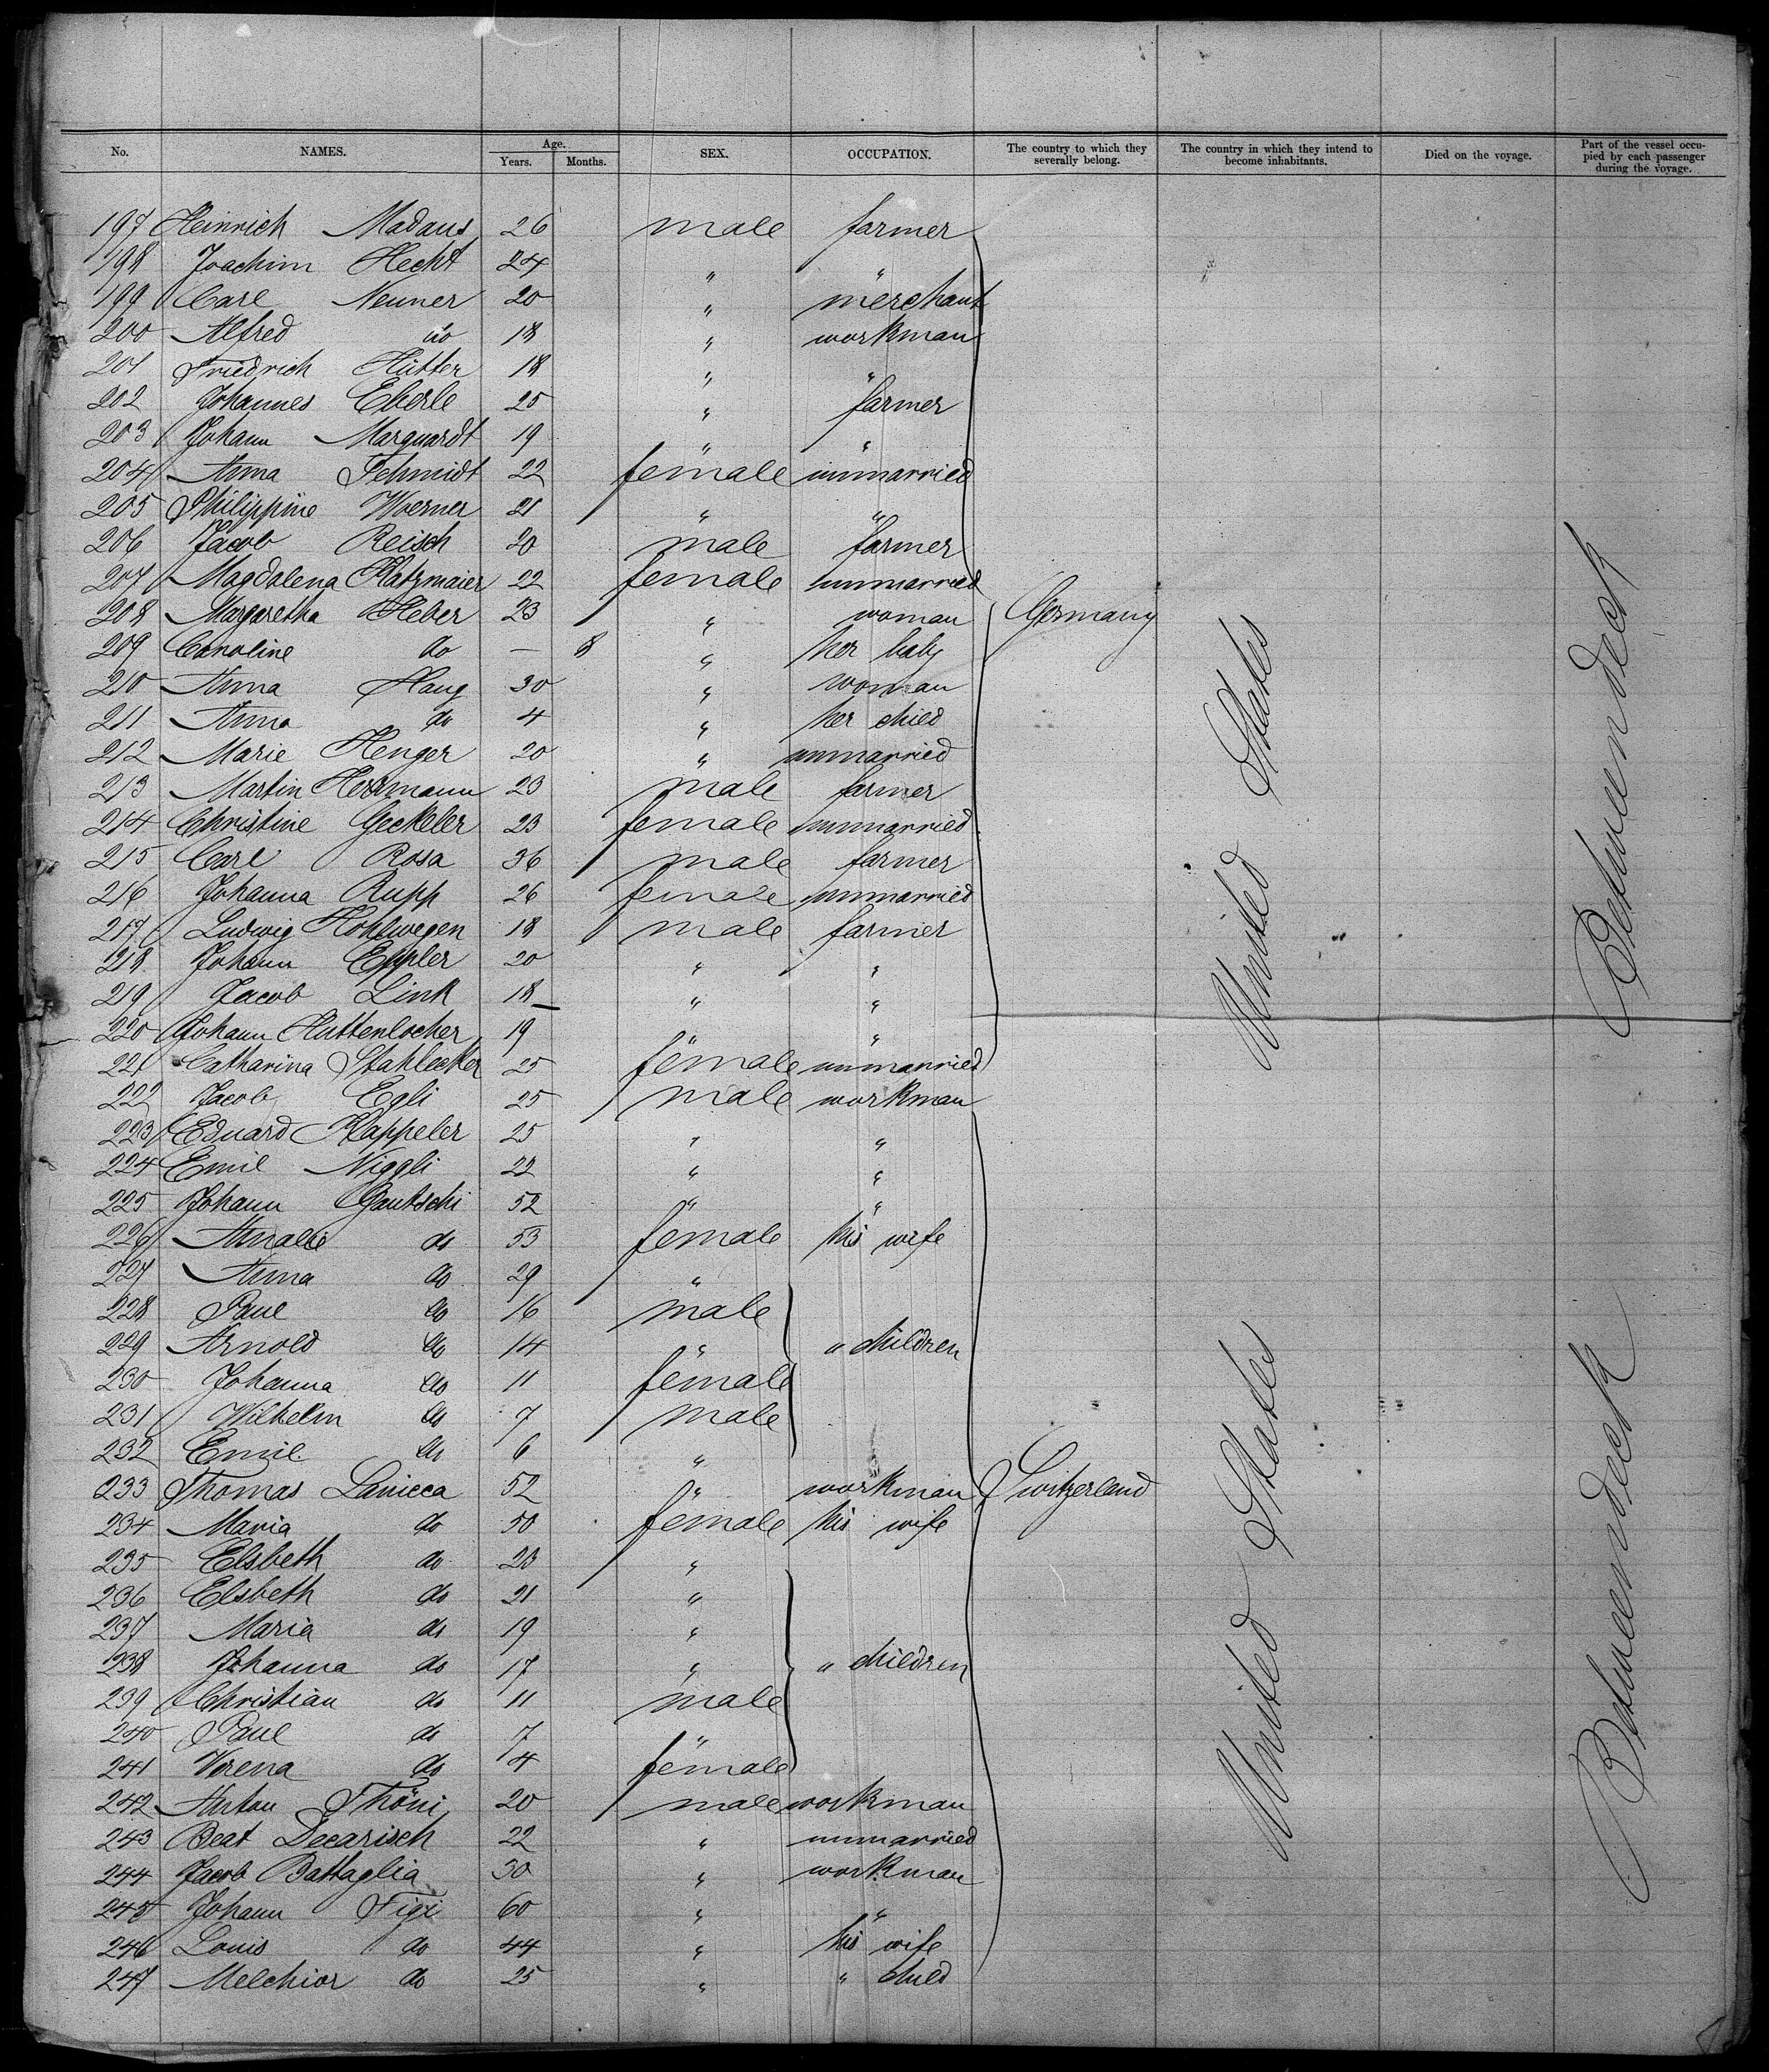 No. NAMES. Age. Years. Months. SEX. OCCUPATION. The country to which they severally belong. The country in which they intend to become inhabitants. Died on the voyage. Part of the vessel occupied by each passenger during the voyage.
197 Heinrich Madaus 26 male farmer
198 Joachim Hecht 24 " "
199 Carl Neuner 20 " merchant
200 Alfred do 18 " workman
201 Friedrich Hütter 18 " "
202 Johannes Eberle 25 " farmer
203 Johann Marquardt 19 " "
204 Anna Schmidt 22 female unmarried
205 Philippine Woerner 21 " "
206 Jacob Reisch 20 male farmer
207 Magdalena Klatzmaier 22 female unmarried
208 Margaretha Heber 23 " woman Germany
209 Caroline do — 8 " her baby
210 Anna Haug 30 " woman
211 Anna do 4 " her child
212 Marie Henger 20 " unmarried
213 Martin Herrmann 23 male farmer
214 Christine Geckeler 23 female unmarried
215 Carl Rosa 36 male farmer
216 Johanna Rupp 26 female unmarried
217 Ludwig Hohlwegen 18 male farmer
218 Johann Eppler 20 " "
219 Jacob Link 18 " "
220 Johann Huttenlocher 19 " "
221 Catharina Stahlecker 25 female unmarried
222 Jacob Egli 25 male workman
223 Eduard Kappeler 25 " "
224 Emil Niggli 22 " "
225 Johann Gautschi 52 " "
226 Amalie do 53 female his wife
227 Anna do 29 "
228 Paul do 16 male
229 Arnold do 14 " " children
230 Johanna do 11 female
231 Wilhelm do 7 male
232 Emil do 6 "
233 Thomas Lanicca 52 " workman Switzerland
234 Maria do 50 female his wife
235 Elsbeth do 23 "
236 Elsbeth do 21 "
237 Maria do 19 "
238 Johanna do 17 " " children
239 Christian do 11 male
240 Paul do 7 "
241 Verena do 4 female
242 Anton Thöni 20 male workman
243 Beat Decarisch 22 " unmarried
244 Jacob Battaglia 30 " workman
245 Johann Figi 60 " "
246 Louis do 44 " his wife
247 Melchior do 25 " " child
United States
Betweendeck
United States
Betweendeck